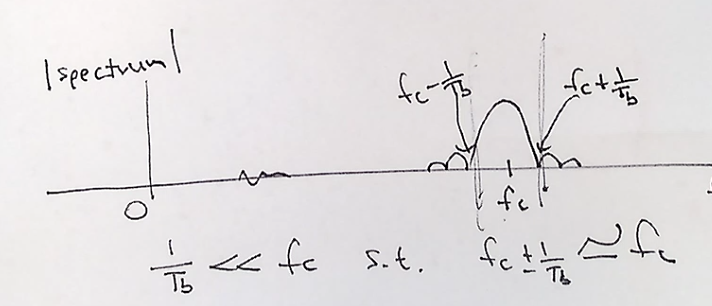 |spectrum|
fc - 1/Tb
fc + 1/Tb
0
fc
1/Tb << fc s.t. fc ± 1/Tb ≃ fc